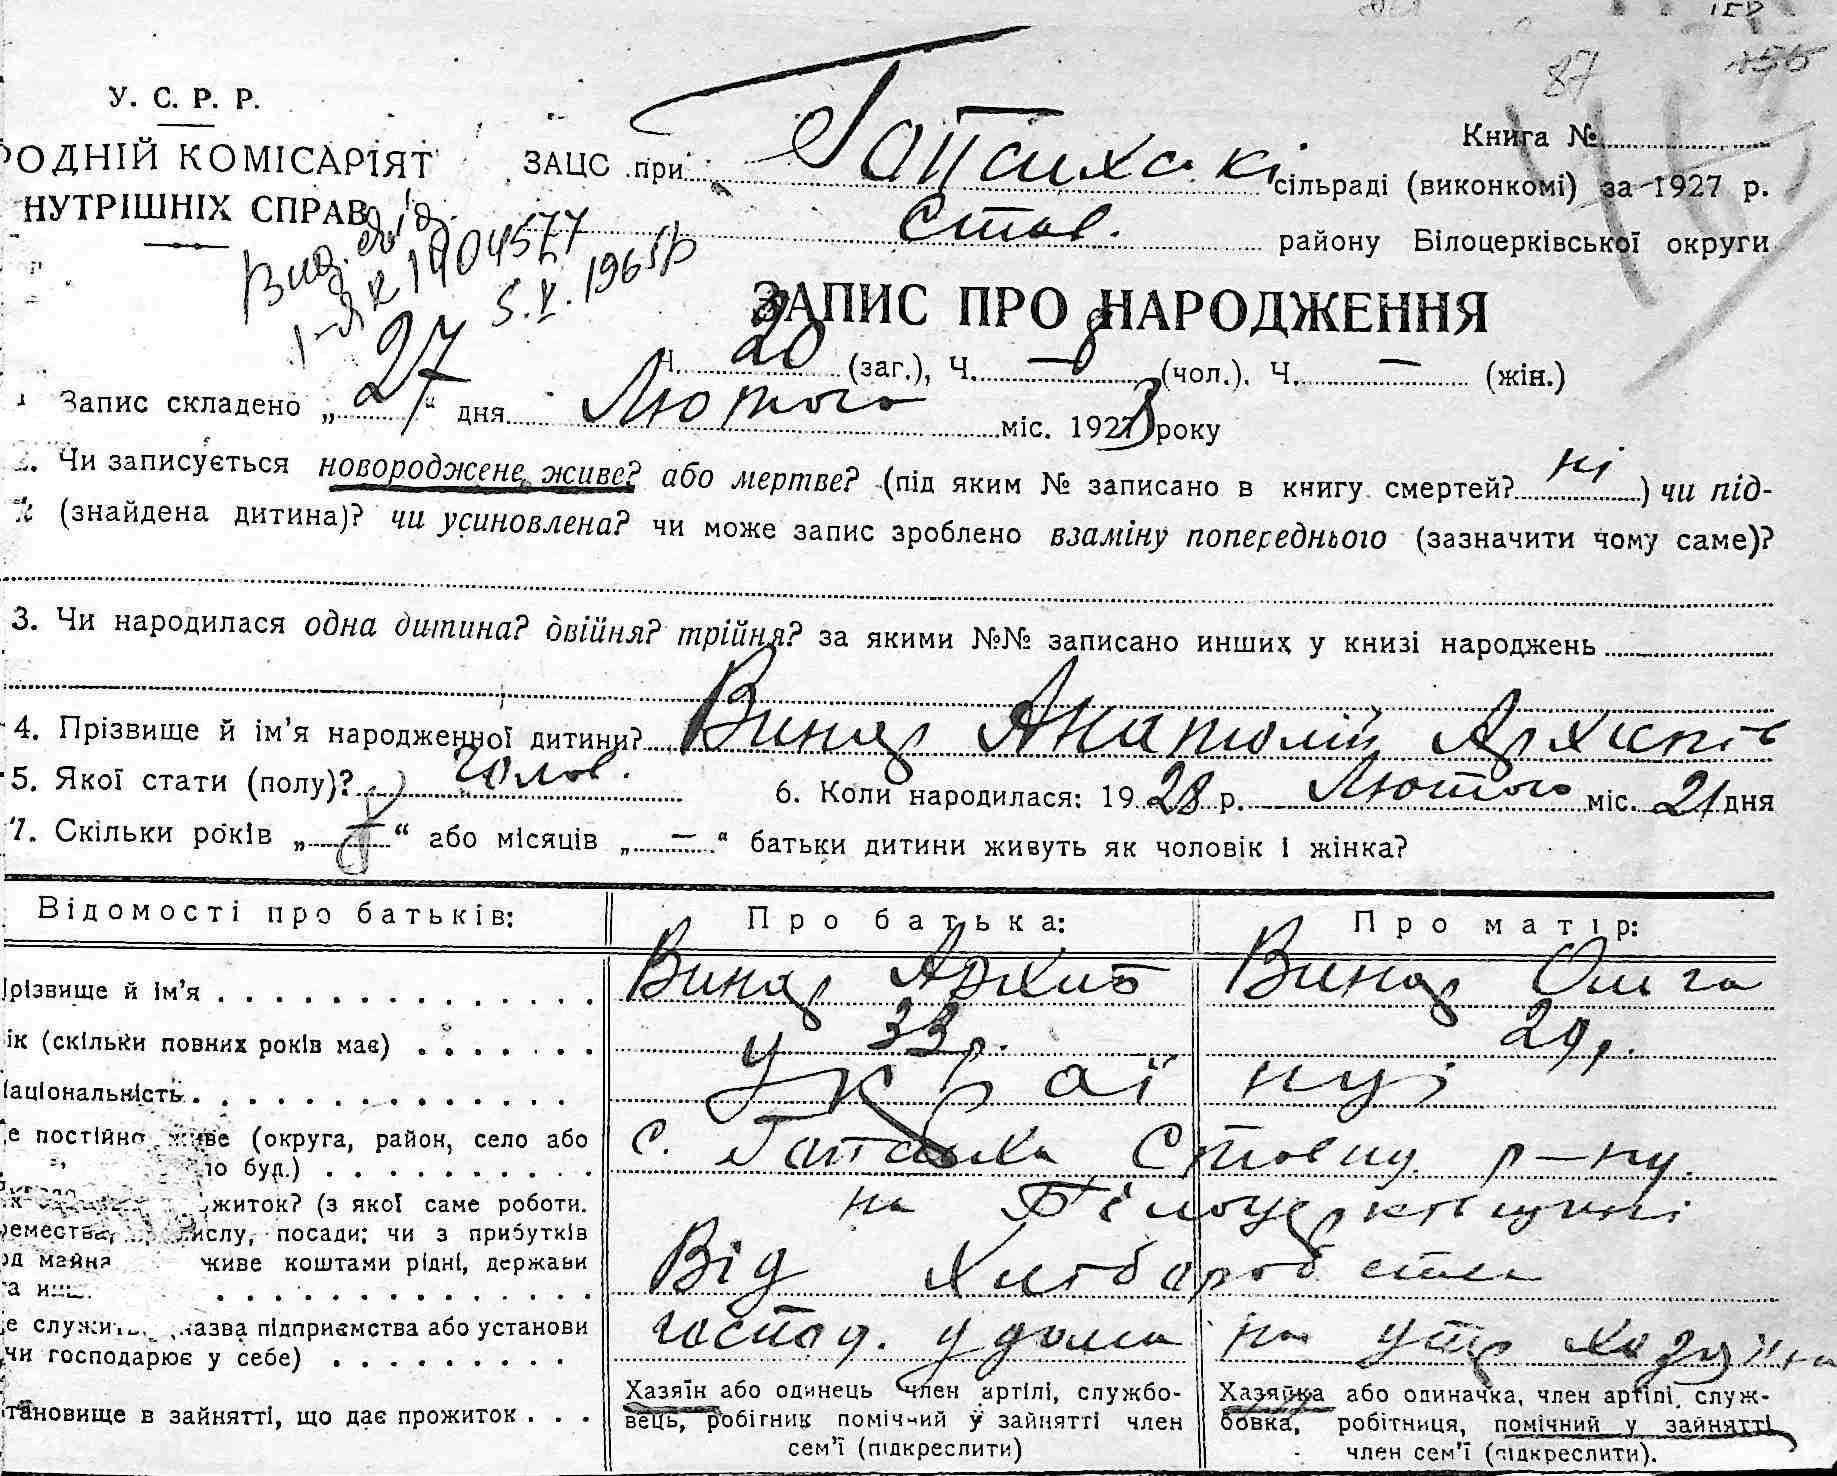 87
У. С. Р. Р.
ОДНІЙ КОМІСАРІЯТ
НУТРІШНІХ СПРАВ
Книга №
ЗАЦС при Гапсихскі сільраді (виконкомі) за 1927 р.
Став. району Білоцерківської округи
Вид.
5.X.1965р
ЗАПИС ПРО НАРОДЖЕННЯ
Ч. 20 (заг.), Ч. 8 (чол.). Ч. — (жін.)
1 Запис складено „27“ дня Лютого міс. 1928 року
2. Чи записується новороджене живе? або мертве? (під яким № записано в книгу смертей? ні) чи під-
к (знайдена дитина)? чи усиновлена? чи може запис зроблено взаміну попереднього (зазначити чому саме)?
3. Чи народилася одна дитина? двійня? трійня? за якими №№ записано инших у книзі народжень
4. Прізвище й ім'я народженної дитини? Винар Анатолій Архипів
5. Якої стати (полу)? чолов. 6. Коли народилася: 1928 р. Лютого міс. 21 дня
7. Скільки років „ “ або місяців „—“ батьки дитини живуть як чоловік і жінка?
Відомості про батьків: Про батька: Про матір:
різвище й ім'я Винар Архип Винар Ольга
ік (скільки повних років має) 33 р. 29 р.
аціональність українці
е постійно живе (округа, район, село або с. Ставищ. р-ну.
о буд.) на Білоцерківщині
житок? (з якої саме роботи.
ремества, ислу, посади; чи з прибутків
од майна живе коштами рідні, держави Від Хліборобства
а инш.
е служить (назва підприємства або установи господ. удома на утр хазяїна
чи господарює у себе)
тановище в зайнятті, що дає прожиток
Хазяїн або одинець член артілі, службо-
вець, робітник помічний у зайнятті член
сем'ї (підкреслити)
Хазяйка або одиначка, член артілі, служ-
бовка, робітниця, помічний у зайнятті
член сем'ї (підкреслити).